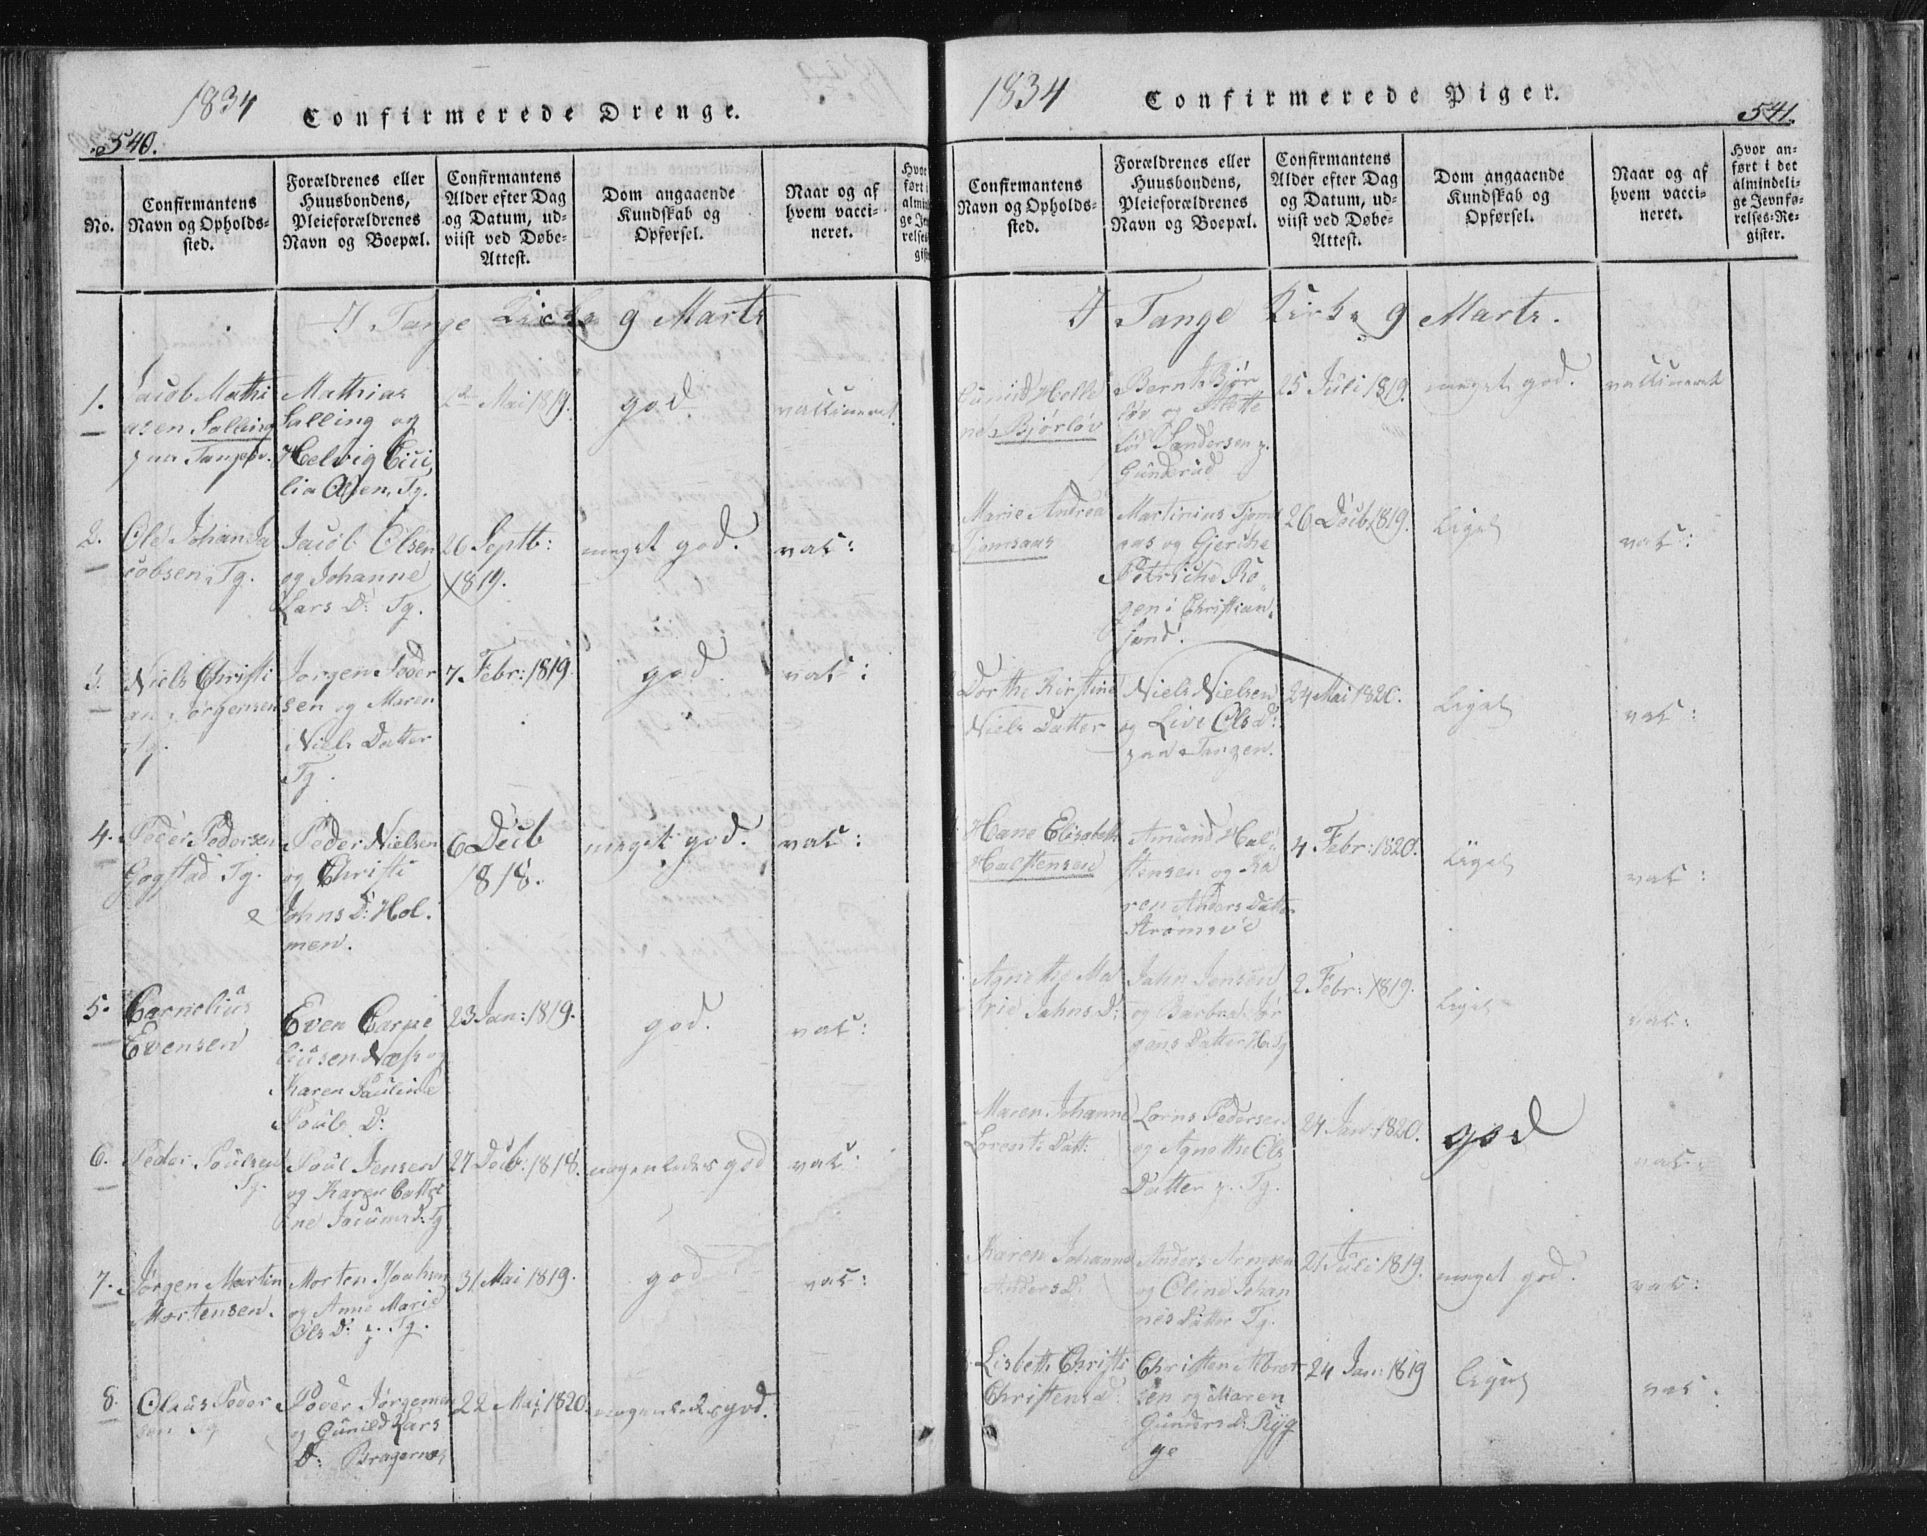 1834
Confirmerede Drenge.
540.
No.
Confirmantens
Navn og Opholds-
sted.
Forældrenes eller
Huusbondens,
Pleieforældrenes
Navn og Boepæl.
Confirmantens
Alder efter Dag
og Datum, ud-
viist ved Døbe-
Attest.
Dom angaaende
Kundskab og
Opførsel.
Naar og af
hvem vacci-
neret.
I Tange Kirke 9 Marts
1.
Jacob Mathi
asen Salling
paa Tangen.
Mathias
Salling og
Helvig Cici,
lia Olsen. Tg.
Mai 1819.
god.
vaccineret
2.
Ole Johan Ja
cobsen. Tg.
Jacob Olsen
og Johanne
Lars D: Tg.
26 Septb:
1819.
meget god.
vac:
3.
Niels Christi
an Jørgensen
Tg.
Jørgen Peder
sen og Maren
Niels Datter
Tg.
7 Febr: 1819.
god.
vac:
4.
Peder Pedersen
Gogstad Tg.
Peder Nielsen
og Christi
Johns D: Hol.
men.
6 Decb
1818.
meget god.
vac:
5.
Cornelius
Evensen
Even Corne
liusen Næss og
Karen Pauline
Pouls D:
23 Jan: 1819.
god.
vac:
6.
Peder Poulsen
Tg.
Poul Jensen
og Karen Cathri
ne D: Tg
27 Decb: 1818.
nogenledes god
vac:
7.
Jørgen Martin
Mortensen.
Morten
og Anne Marie
Ols D: p. Tg.
31 Mai 1819.
god
vac:
8.
Olaus Peder
sen Tg
Peder Jørgensen
og Gunild Lars
D: Bragernes
22 Mai 1820.
nogenledes god.
1834
Confirmerede Piger.
541.
Confirmantens
Navn og Opholds-
sted.
Forældrenes eller
Huusbondens,
Pleieforældrenes
Navn og Boepæl.
Confirmantens
Alder efter Dag
og Datum, ud-
viist ved Døbe-
Attest.
Dom angaaende
Kundskab og
Opførsel.
Naar og af
hvem vacci-
neret.
Hvor an-
ført i det
almindeli-
ge Jevnfø-
relses-Re-
gister.
I Tange Kirke 9 Marts.
Bjørløv
Bernt Bjør
løv og Mette
Sandersen p.
Gunderud
25 Juli 1819.
meget god.
vaccineret
Marie Andrea
Tjomsaas
Martinius Tjoms
aas og Gjerche
Petriche Ro
gen i Christian,
sand.
26 Decb 1819.
Liget
vac:
Dorthe Kirstine
Niels Datter
Niels Nielsen
og Live Ols D:
paa Tangen.
24 Mai 1820.
Liget
vac:
Hane Elisabeth
Halstensen
Amund Hal,
stensen og Ka
ren Anders Datter
Strømsøe
4 Febr: 1820.
Liget
vac:
Agnethe Ma
trie Jahns D:
Jahn Jensen
og Barbra Jør
gens Datter
2 Febr: 1819.
Liget
vac:
Maren Johanne
Lorents Datt:
Lorns Pedersen
og Agnethe Ols
Datter p. Tg.
24 Jan: 1820.
god
vac:
Karen Johanne
Anders D:
Anders Arnesen
og Oline Johan
nes Datter Tg.
21 Juli 1819.
meget god.
vac:
Lisbeth Christi
Christens d:
Christen Albret
sen og Maren
Gunders D: Ryg
ge
24 Jan: 1819
Liget
vac: